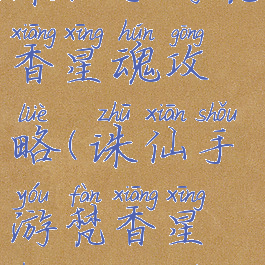 xiāng xīng hún gōng
香星魂攻
lüè zhū xiān shǒu
略(诛仙手
yóu fàn xiāng xīng
游梵香星